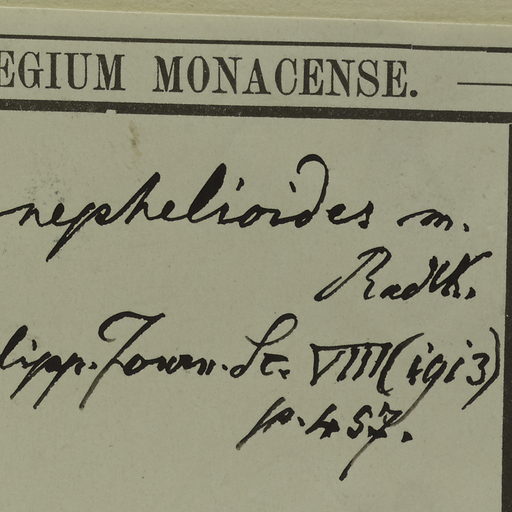 EGIUM MONACENSE.
nephelioides m.
Radlk.
lipp. Journ. Sc. VIII (1913)
p. 457.